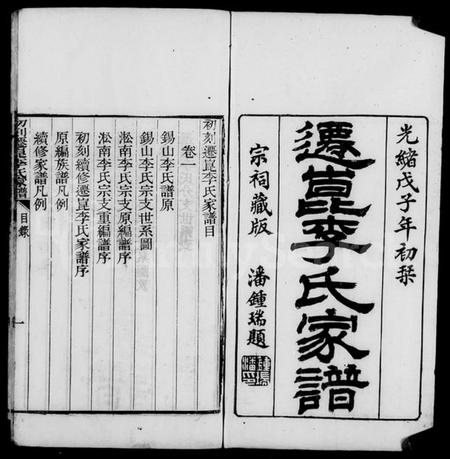 光緒戊子年初栞
遷崑李氏家譜
宗祠藏版
潘鍾瑞題
初刻遷崑李氏家譜目
卷一
錫山李氏譜原
錫山李氏宗支世系圖
淞南李氏宗支原編譜序
淞南李氏宗支重編譜序
初刻續修遷崑李氏家譜序
原編族譜凡例
續修家譜凡例
初刻遷崑李氏家譜
目錄
一